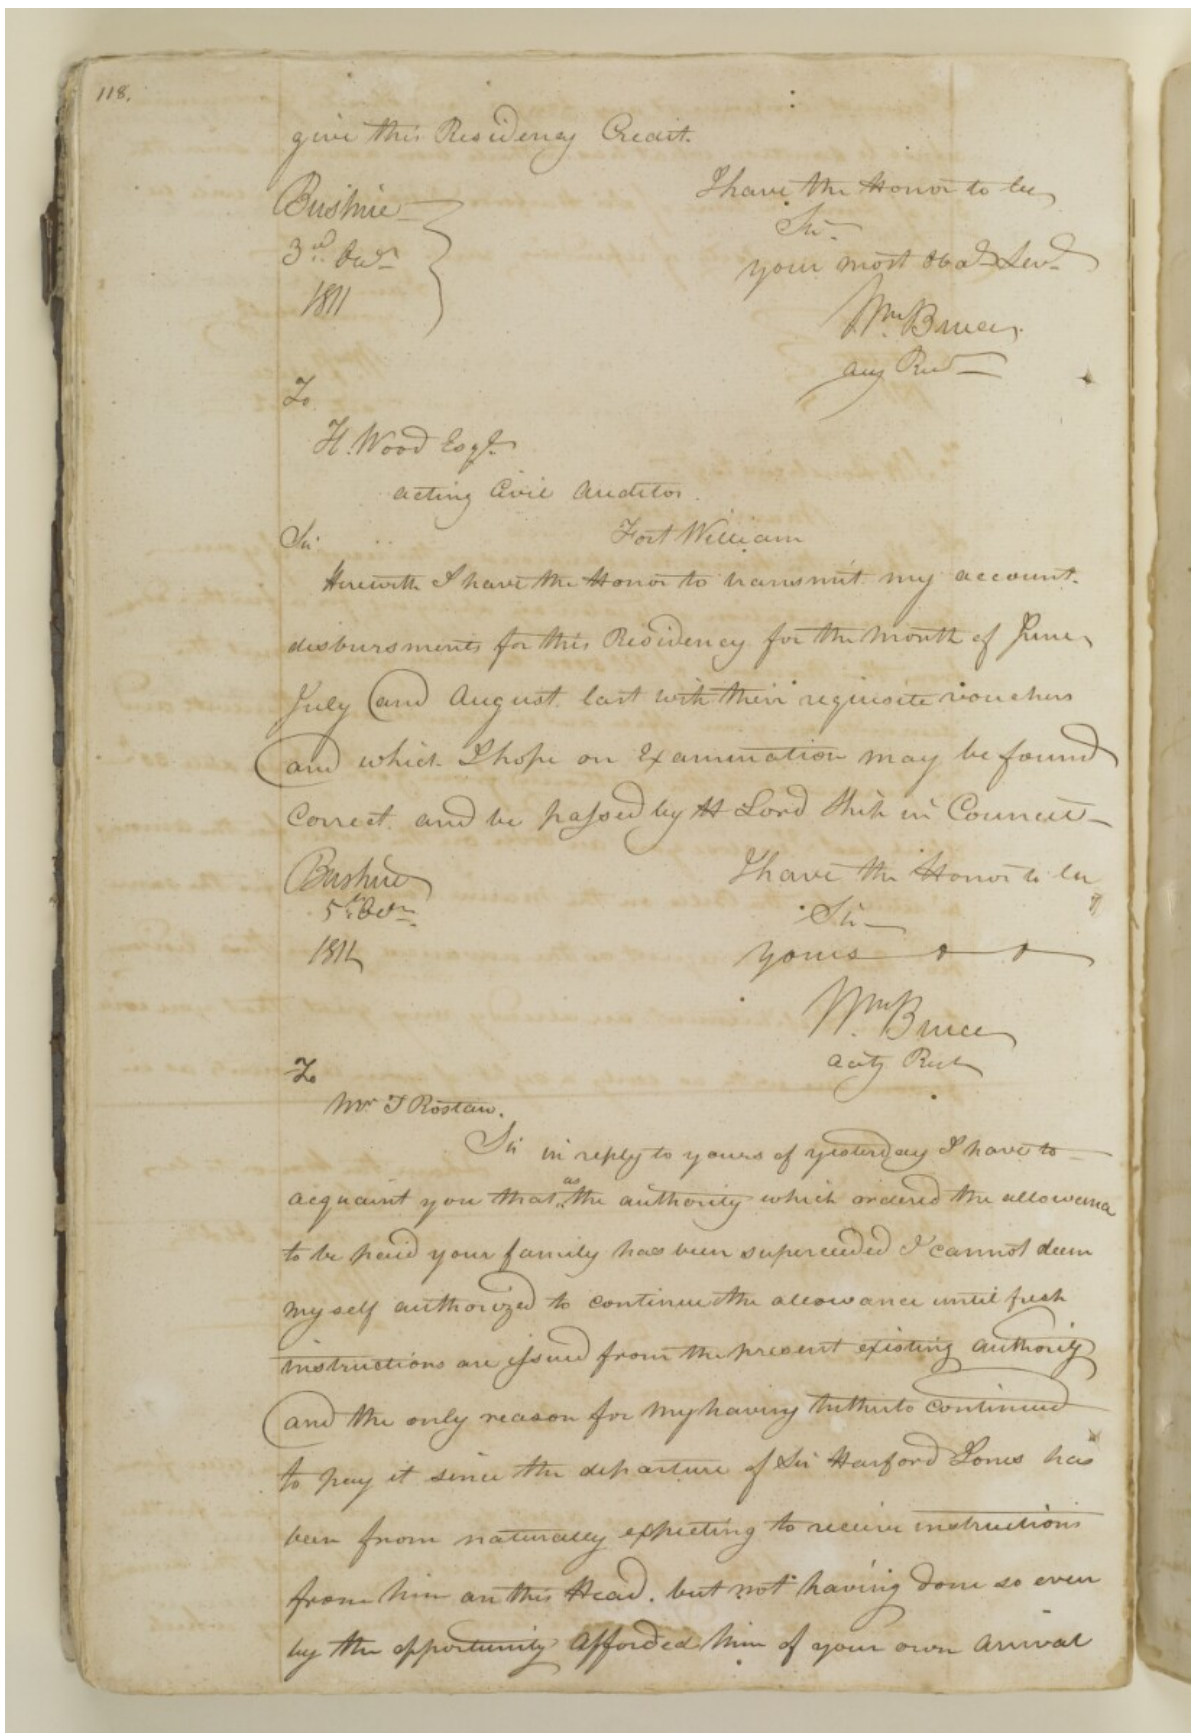 118.
give this Residency Credit.
I have the Honor to be
Bushire
Sir
3rd Octr
your most Obdt Servt
1811
Wm Bruce
Actg Resdt
To
H. Wood Esqr
acting Civil Auditor.
Sir
Fort William
Herewith I have the Honor to transmit my account.
disbursments for this Residency for the Month of June,
July and August last with their requisite vouchers
and which I hope on Examination may be found
Correct and be passed by H Lord Ship in Council
Bushire
I have the Honor to be
5th Octr
Sir
1811
yours
Wm Bruce
Actg Rest
To
Mr. J Rostan.
Sir in reply to yours of yesterday I have to
acquaint you that as the authority which ordered the allowance
to be paid your family has been superceeded I cannot deem
myself authorized to continue the allowance until fresh
instructions are issued from the present existing authority
and the only reason for my having hitherto continued
to pay it since the departure of Sir Harford Jones has
been from naturally expecting to receive instructions
from him on this Head. but not having done so even
by the opportunity afforded him of your own arrival